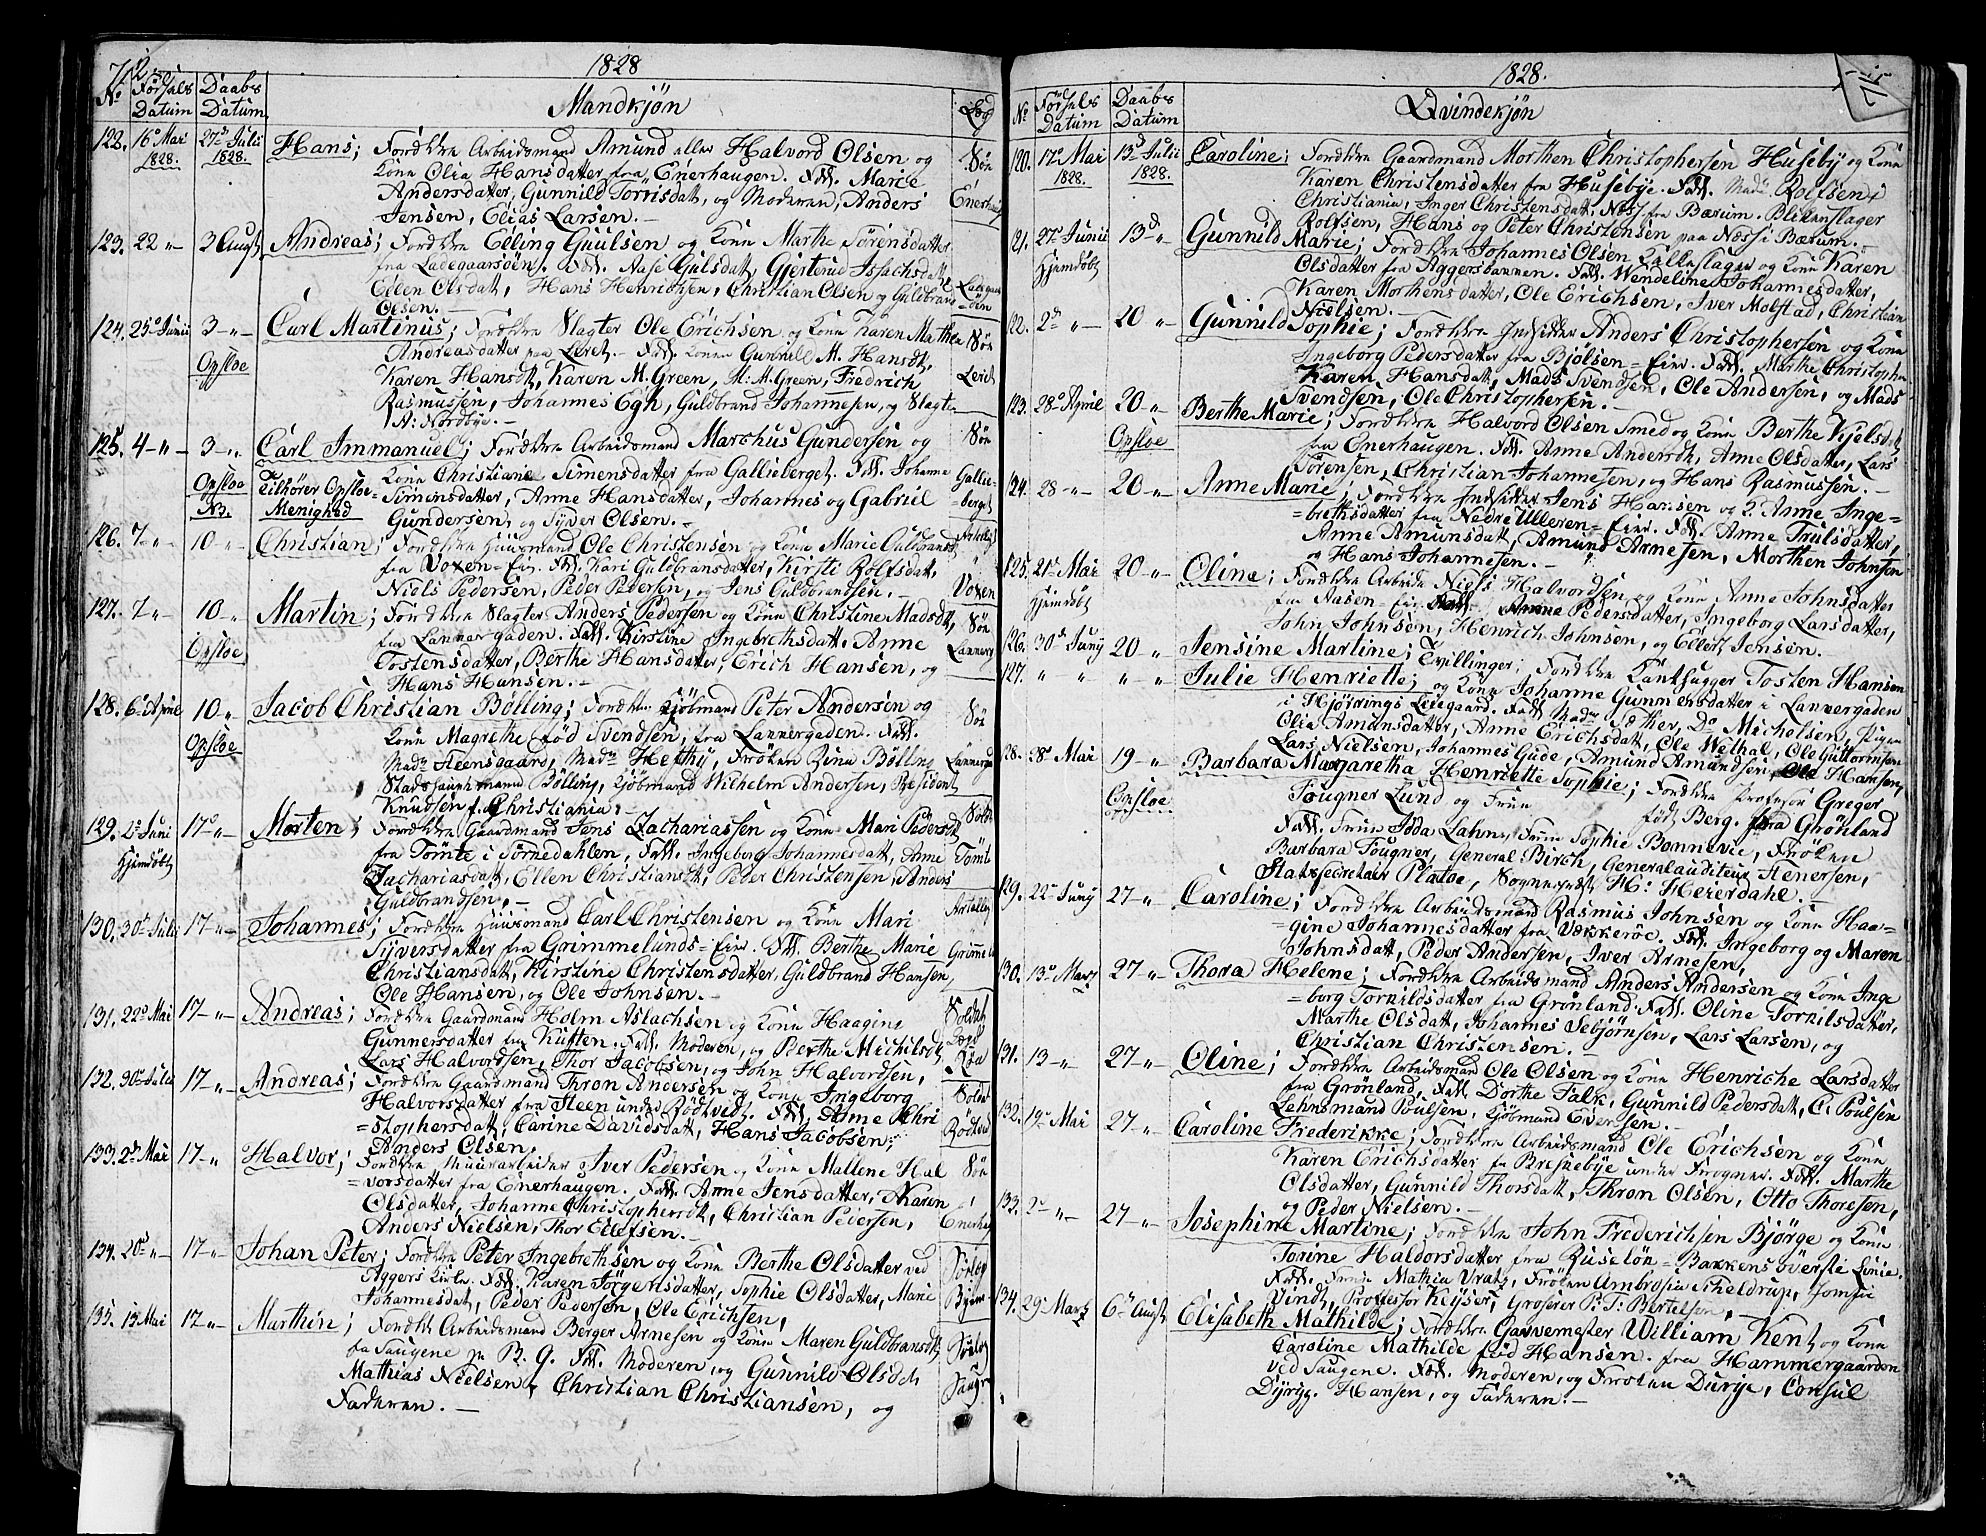 712
1828
No Fødsels Datum Daabs Datum Mandkjøn Læg
122. 16d Mai 1828. 27d Julii 1828. Hans; Forældre Arbeidsmand Amund eller Halvord Olsen og Søn
Kone Olia Hansdatter fra Enerhaugen. Fadd. Marie
Andersdatter, Gunnild Torrisdatt, og Moderen, Anders Enerhaug
Jensen, Elias Larsen. —
123. 22 „ 3 Augst Andreas; Forældre Elling Guulsen og Kone Marthe Sørensdatter
fra Ladegaarsøen. Fadd. Aase Gulsdatt, Gjertrud Issachsdatt
Ellen Olsdatt, Hans Henrichsen, Christian Olsen og Guldbrand Ladegaarsøen
Olsen. —
124. 25d Junii 3 „ Carl Martinus; Forældre Slagter Ole Erichsen og Kone Karen Marthea Søn
Andreasdatter paa Leret. — Fadd. Kone Gunnild M. Hansdt,
Opsloe Karen Hansdt, Karen M. Green, M. A. Green, Fredrich Leret
Rasmussen, Johannes Egh, Guldbrand Johannesen, og Slagter
A: Nordbye. —
125. 4 „ 3 „ Carl Immanuel; Forældre Arbeidsmand Marchus Gundersen og Søn
Kone Christiane Simensdatter fra Gallieberget. Fadd. Johanne
Opsloe Tilhører Opsloe Simensdatter, Anne Hansdatter, Johannes og Gabriel Gallieberget
N3. Menighed Gundersen, og Syver Olsen. —
126. 7 „ 10 „ Christian; Forældre Huusmand Ole Christensen og Kone Marie Gulbransdt
fra Voxen=Eier. Fadd. Kari Guldbransdatter, Kirsti Rolfsdat,
Niels Pedersen, Peder Pedersen, og Jens Guldbrandsen. — Voxen
127. 7 „ 10 „ Martin; Forældre Slagter Anders Pedersen og Kone Christine Madsdt, Søn
fra Lannergaden. Fadd. Kirstine Ingebrethsdatt. Anne
Opsloe Tostensdatter, Berthe Hansdatter, Erich Hansen, og Lannerg
Hans Hansen. —
128. 6 Aprile 10 „ Jacob Christian Bölling; Forældre Kjöbmand Peter Andersen og Søn
Opsloe Kone Magrethe fød Svendsen, fra Lannergaden. Fadd.
Madm Steensgaard, Madm Hefthÿ, Frøken Rina Bölling Lannergad
Stadshauptmand Bölling, Kjöbmand Wilhelm Andersen, President
Knudsen fra Christiania.
129. 2d Juni 17d „ Morten; Forældre Gaardmand Jens Zachariassen og Kone Mari Pedersdt Soldt
Hjemdöbt fra Tömte i Sörnedahlen, Fadd. Ingeborg Johannesdatt, Anne Tömte
Zachariasdatt, Ellen Christiansdt, Peter Christensen, Anders
Guldbrandsen. —
130. 30d Julii 17 „ Johannes; Forældre Huusmand Carl Christensen og Kone Mari
Syversdatter fra Grimmelunds=Eier. Fadd. Berthe Marie
Christiansdatt, Kirstine Christensdatter, Guldbrand Hansen,
Ole Hansen, og Ole Johnsen. —
131. 22d Mai 17 „ Andreas; Forældre Gaardmand Holm Aslachsen og Kone Haagine Soldat
Gunnersdatter fra Kuften. Fadd. Moderen, og Berthe Michilsdt Lægd
Lars Halvordsen, Thor Jacobsen, og John Halvordsen, Røa
132. 30d Julii 17 „ Andreas; Forældre Gaardmand Thron Andersen og Kone Ingeborg Soldat
Halvorsdatter fra Steen under Rödtvedt. Fadd. Anne Chri
=stophersdatt, Carine Davidsdatt, Hans Jacobsen, Rödtved
Anders Olsen,
133. 2d Mai 17 „ Halvor; Forældre Muurarbeider Iver Pedersen og Kone Mallene Hal Søn
=vorsdatter fra Enerhaugen. Fadd. Anne Jensdatter, Karen
Olsdatter, Johanne Christophersdt, Christian Pedersen, Enerhag
Anders Nielsen, Thor Ellefsen. —
134. 20d „ 17 „ Johan Peter; Forældre Peter Ingebrethsen og Kone Berthe Olsdatter ved
Aggers Kirke. Fadd. Karen Jörgensdatter, Sophie Olsdatter, Marie
Johannesdat, Peder Pedersen, Ole Erichsen,
135. 15 Mai 17 „ Marthin; Forældre Arbeidsmand Berger Arnesen og Kone Maren Guldbransdt.
fra Saugene paa B. G. Fadd. Moderen, og Gunnild Olsdt
Mathias Nielsen, Christian Christiansen, og
Faderen. —
1828.
No Fødsels Datum Daabs Datum Qvindekjøn
120. 17d Mai 1828. 13d Julii 1828. Caroline; Forældre Gaardmand Morthen Christophersen Huseby og Kone
Karen Christensdatter fra Husebye. Fadd. Madm Rolfsen i
Christiania, Inger Christensdatt, Næss fra Bærum. Blikenslager
Rolfsen, Hans og Peter Christensen paa Næss i Bærum. —
21. 27d Junii 13d „ Gunnild Marie; Forældre Johannes Olsen Kalleslager og Kone Karen
Hjemdöbt Olsdatter fra Aggersbannen. Fadd. Wendeline Johannesdatter,
Karen Morthensdatter, Ole Erichsen, Iver Molstad, Christian
Nielsen. —
22. 2d „ 20 „ Gunnild Sophie; Forældre Indsidder Anders Christophersen og Kone
Ingeborg Pedersdatter fra Bjölsen=Eier. Fadd. Marthe Christophe
Karen Hansdatt, Mads Svendsen, Ole Andersen, og Mads
Svendsen, Ole Christophersen. —
123. 28d Aprile 20 „ Berthe Marie; Forældre Halvord Olsen Smed og Kone Berthe Kjelsdatt
Opsloe fra Enerhaugen. Fadd. Anne Andersdt, Anne Olsdatter, Lars
Sörensen, Christian Johannesen, og Hans Rasmussen. —
124. 28 „ 20 „ Anne Marie; Forældre Indsidder Jens Hansen og K. Anne Inge=
=brethsdatter fra Nedre Ulleren=Eier. Fadd. Anne Trulsdatter,
Anne Amunsdatt, Amund Arnesen, Morthen Johnsen
og Hans Johannesen. —
125. 21d Mai 20 „ Oline; Forældre Arbeids Niels Halvordsen og Kone Anne Johnsdatter
Hjemdöbt fra Aasen=Eier. Fadd. Anne Pedersdatter, Ingeborg Larsdatter,
John Johnsen, Henrich Johnsen, og Ellert Jensen.
126. 30d Junÿ 20 „ Jensine Martine; Tvillinger; Forældre Tosten Hansen
127. „ „ „ „ Julie Henriette; og Kone Johanne Gunnersdatter i Lannergaden
i Hjörrings Leiegaard. Fadd. Madm Sæther, Do Michelsen, Pigen
Olia Amunsdatter, Anne Erichsdatt, Ole Wethal, Ole Guttormsen
Lars Nielsen, Johannes Gude, Amund Amundsen, Ole Hansen,
28. 28d Mai 19 „ Barbara Margaretha Henriette Sophie; Forældre Professor Greger
Opsloe Fougner Lund og Frue født Berg. fra Grönland
Fadd. Frue Idda Lahne, Frue Sophie Bonnevie, Frøken
Barbara Fougner, General Birch, Generalauditeur Henersen,
Statssecretair Platoe, Sogneprest H: Heierdahl. —
129. 22d Junÿ 27 „ Caroline; Forældre Arbeidsmand Rasmus Johnsen og Kone Haa=
=gine Johannesdatter fra Vækkeröe. Fadd. Ingeborg og Maren
Johnsdatt, Peder Andersen, Iver Arnesen,
130. 13d Marz 27 „ Thora Helene; Forældre Arbeidsmand Anders Andersen og Kone Inge
=borg Tornildsdatter fra Grönland. Fadd. Oline Tornilsdatter,
Marthe Olsdatt, Johannes Sebjörnsen, Lars Larsen, og
Christian Christensen. —
131. 13 „ 27 „ Oline; Forældre Arbeidsmand Ole Olsen og Kone Henriche Larsdatter
fra Grönland, Fadd. Dorthe Falk, Gunnild Pedersdatt, C. Poulsen
Lehnsmand Poulsen, Kjöbmand Eversen. —
132. 19d Mai 27 „ Caroline Frederikke; Forældre Arbeidsmand Ole Erichsen og Kone
Karen Erichsdatter fra Breskebye under Frogner. Fadd. Marthe
Olsdatter, Gunnild Thorsdatt, Thron Olsen, Otto Thoresen,
og Peder Nielsen. —
133. 2d „ 27 „ Josephine Martine; Forældre John Frederichsen Bjørge og Kone
Torine Haldorsdatter fra Ruseløn=Bakkens øverste Linie.
Fadd. Frue Mathia Vratz, Frøken Ambrosia Theldrup, Jomfru
Vindt, Professor Keyser, Groserer P. T. Bertelsen, —
134. 29d Marz 6d Augst Elisabeth Mathilde; Forældre Garvemester William Kent og Kone
Caroline Mathilde fød Hansen. fra Hammergaarden
ved Saugene. Fadd. Moderen, og Frøken Durye, Consul
Hansen, og Faderen. —